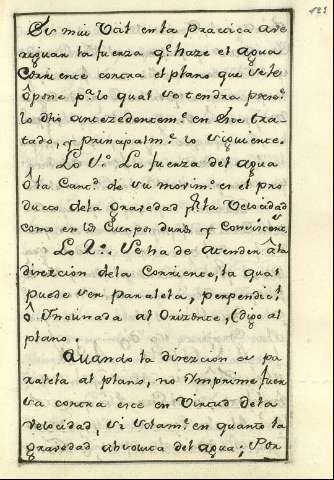 121
Es mui Util en la Practica ave
riguar la fuerza q.e haze el agua
Corriente contra el plano que se le
opone p.a lo qual se tendra prese.te
lo dho antezedentem.te en este tra-
tado, y principalm.te lo siguiente.
Lo 1.o La fuerza del agua
ô la Cant.d de su movim.to es el pro
ducto dela gravedad p.r la Velocidad
como en los Cuerpos duros y
Lo 2.o Se ha de atender â la
direzcion dela Corriente, la qual
puede ser paralela, perpendic.l
ô Ynclinada al Orizonte, (digo al
plano.
Quando la direzcion es pa
ralela al plano, no Ymprime fuer
sa contra este en Virtud dela
Velocidad, si solam.te en quanto la
gravedad absoluta del agua; Por